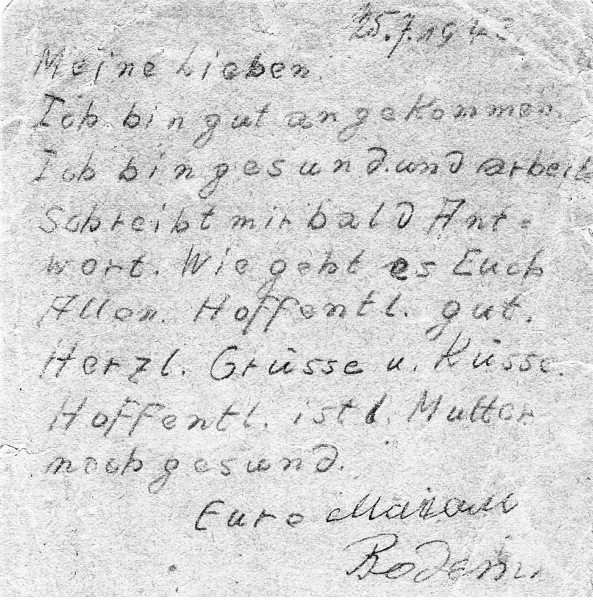 25.7.1943
Meine Lieben.
Ich bin gut angekommen.
Ich bin gesund. und arbeite
Schreibt mir bald Ant=
wort. Wie geht es Euch
Allen. Hoffentl. gut.
Herzl. Grüsse u. Küsse.
Hoffentl. ist l. Mutter
noch gesund.
Eure